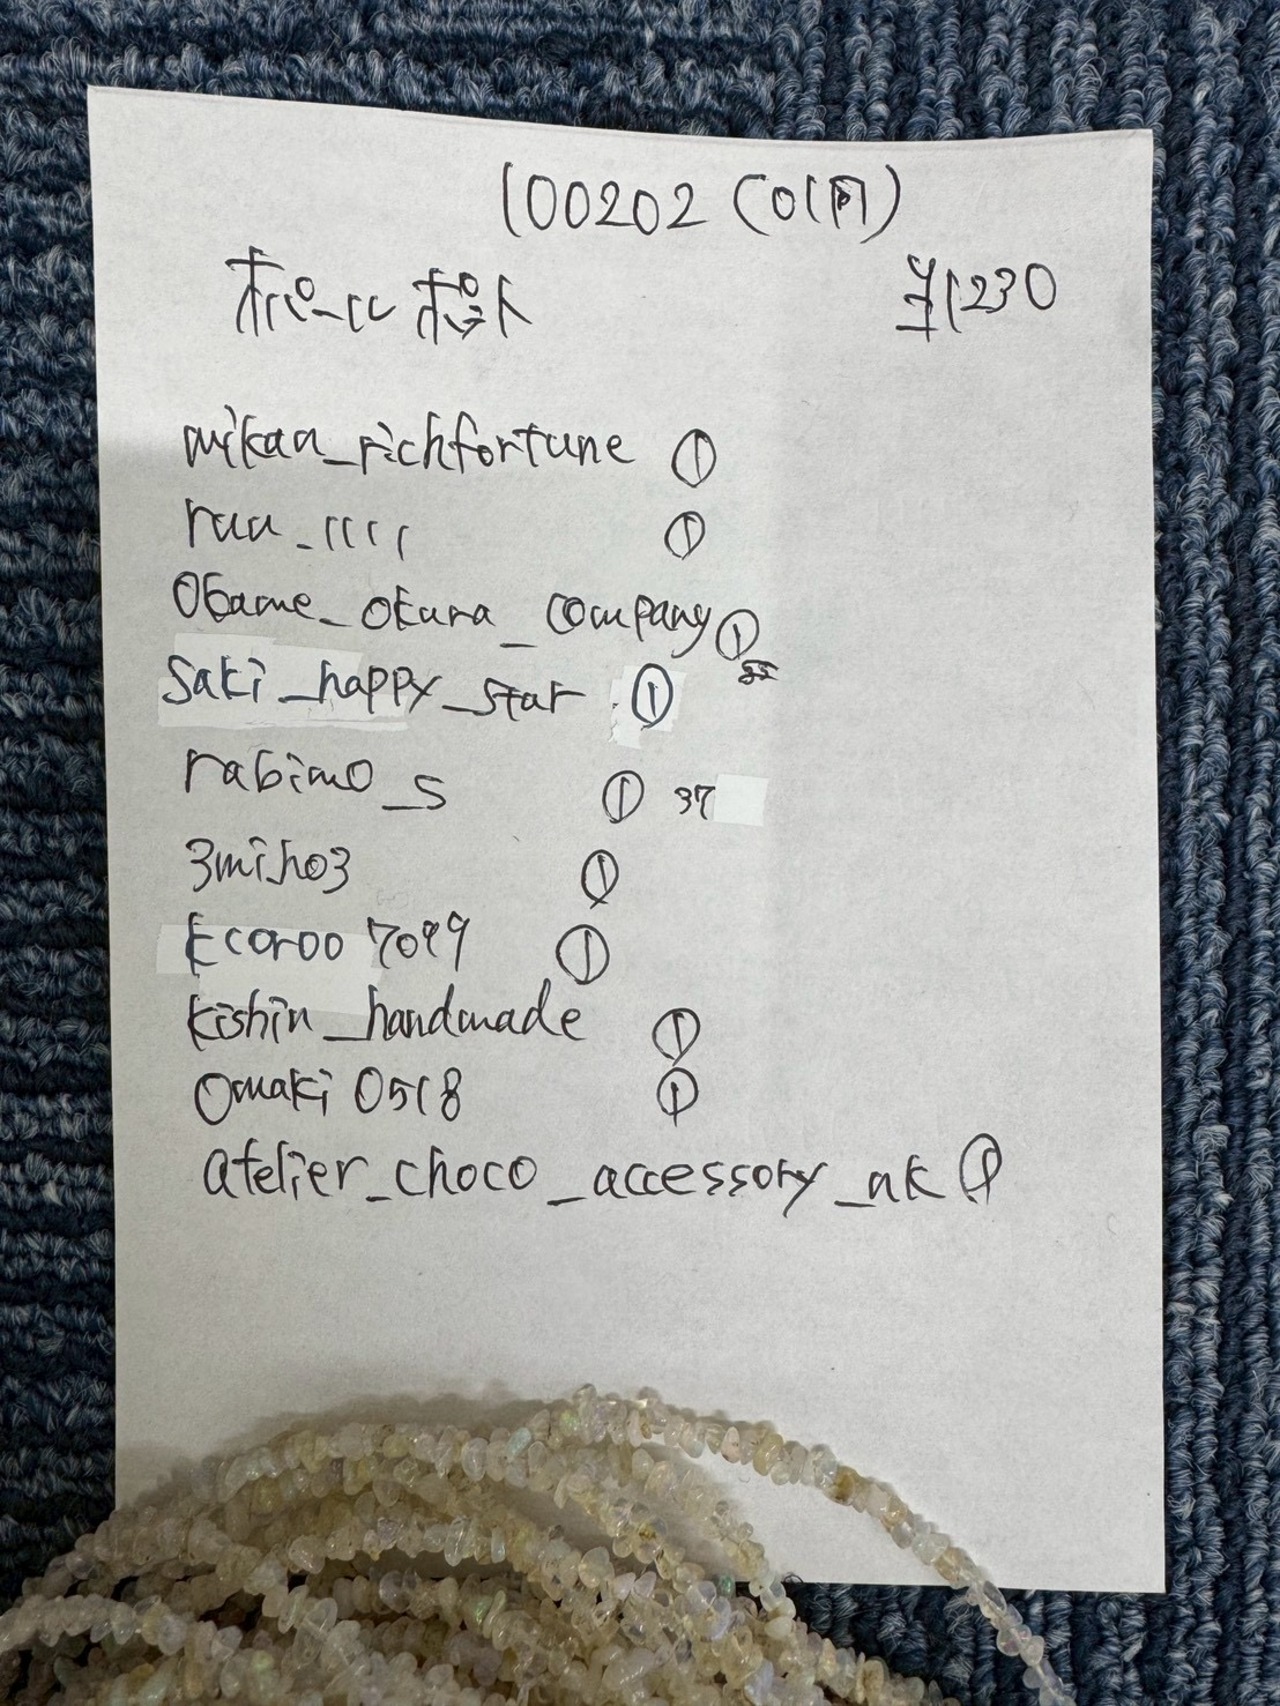 100202 (01円)
オパール ポスト ¥1230
mikan_richfortune ①
ruu_1111 ①
Obame_okura_company ①
saki_happy_star ①
rabimo_s ① 37
3miho3 ①
kcoroo7099 ①
kishin_handmade ①
Omaki0518 ①
atelier_choco_accessory_nk ①